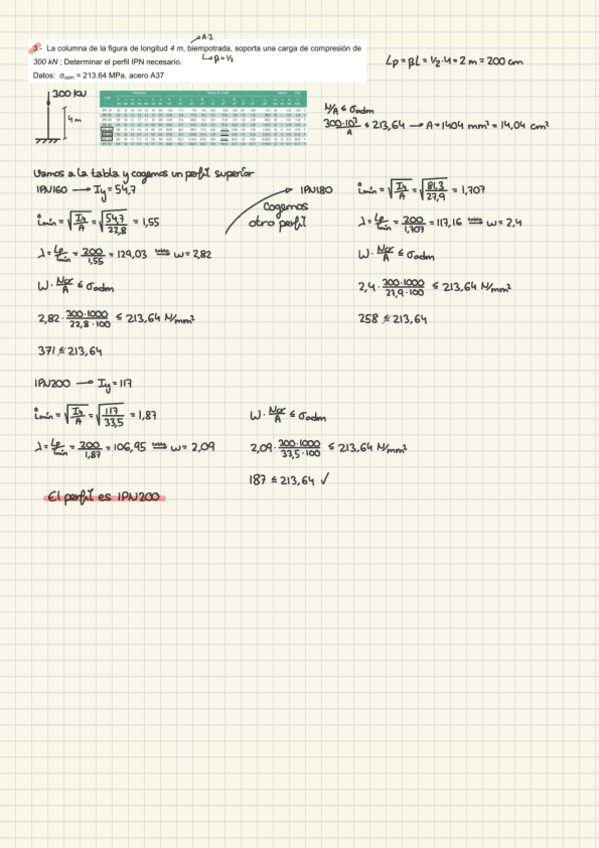 A-2
3.- La columna de la figura de longitud 4 m, biempotrada, soporta una carga de compresión de
300 kN ; Determinar el perfil IPN necesario.
β=1/2
Datos: σadm = 213.64 MPa, acero A37
Lp = βL = 1/2·4 = 2 m = 200 cm
300 KN
4 m
N/A ≤ σadm
300·10³/A ≤ 213,64 → A = 1404 mm² = 14,04 cm²
Vamos a la tabla y cogemos un perfil superior
IPN160 → Iy = 54,7
imin = √(Iy/A) = √(54,7/22,8) = 1,55
λ = Lp/imin = 200/1,55 = 129,03 tabla ⟹ w = 2,82
W · Nor/A ≤ σadm
2,82 · 300·1000/22,8·100 ≤ 213,64 N/mm²
371 ≰ 213,64
Cogemos
otro perfil
IPN180
imin = √(Iy/A) = √(81,3/27,9) = 1,707
λ = Lp/imin = 200/1,707 = 117,16 tabla ⟹ w = 2,4
W · Nor/A ≤ σadm
2,4 · 300·1000/27,9·100 ≤ 213,64 N/mm²
258 ≰ 213,64
IPN200 → Iy = 117
imin = √(Iy/A) = √(117/33,5) = 1,87
λ = Lp/imin = 200/1,87 = 106,95 tabla ⟹ w = 2,09
W · Nor/A ≤ σadm
2,09 · 300·1000/33,5·100 ≤ 213,64 N/mm²
187 ≤ 213,64 ✓
El perfil es IPN200